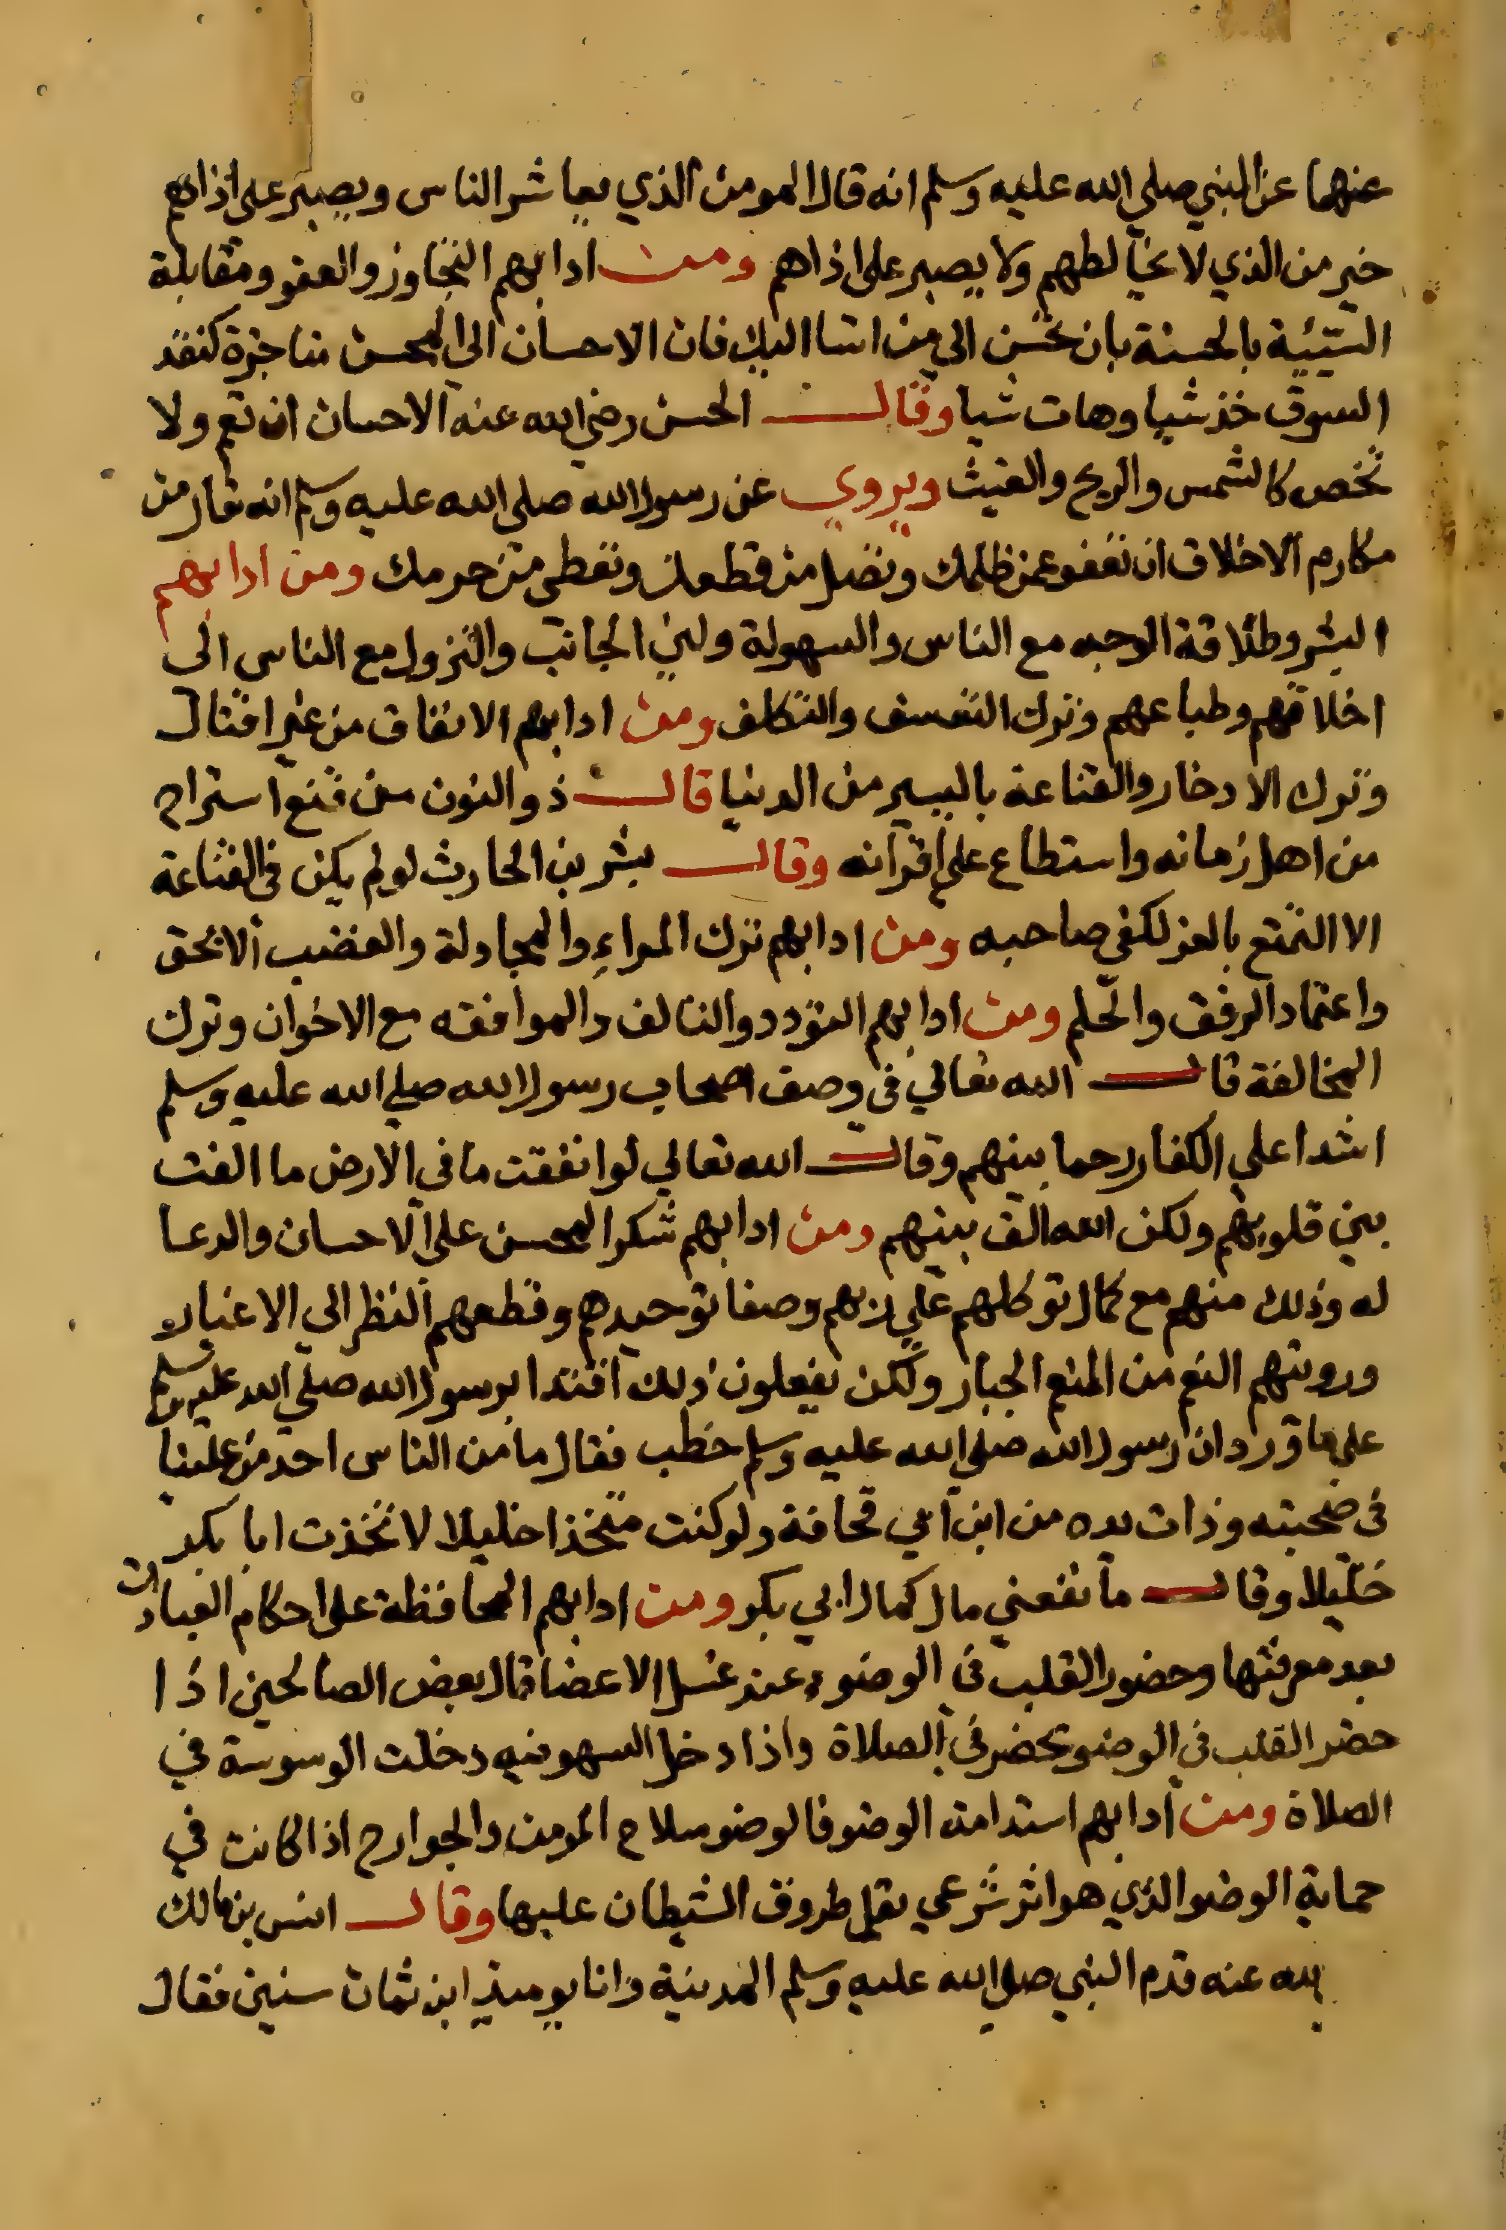 عنهما عن النبي صلى الله عليه وسلم انه قال المومن الذي يعاشر الناس ويصبر على اذاهم
خير من الذي لا يخالطهم ولا يصبر على اذاهم ومن ادابهم التجاوز والعفو ومقابلة
السيئية بالحسنة بان تحسن الى من اسا اليك فان الاحسان الى المحسن مناجزة كنقد
السوق خذ شيا وهات شيا وقال الحسن رضي الله عنه الاحسان ان تعم ولا
تخص كالشمس والريح والغيث ويروي عن رسول الله صلى الله عليه وسلم انه قال من
مكارم الاخلاق ان تعفو عمن ظلمك وتصل من قطعك وتعطى من حرمك ومن ادابهم
البشر وطلاقة الوجه مع الناس والسهولة ولين الجانب والنزول مع الناس الى
اخلاقهم وطباعهم وترك التعسف والتكلف ومن ادابهم الانفاق من غير اقتال
وترك الادخار والقناعة باليسير من الدنيا قال ذو النون من قنع استراح
من اهل زمانه واستطاع على اقرانه وقال بشر بن الحارث لو لم يكن فى القناعة
الا التمتع بالعز لكفى صاحبه ومن ادابهم ترك المراء والمجادلة والغضب الا بحق
واعتماد الرفق والحلم ومن ادابهم التودد والتالف والموافقه مع الاخوان وترك
المخالفة قال الله تعالي فى وصف اصحاب رسول الله صلي الله عليه وسلم
اشدا علي الكفار رحما بينهم وقال الله تعالي لو انفقت ما فى الارض ما الفت
بين قلوبهم ولكن الله الف بينهم ومن ادابهم شكر المحسن على الاحسان والدعا
له وذلك منهم مع كمال توكلهم على ربهم وصفا توحيدهم وقطعهم النظر الي الاغيار
ورويتهم النعم من المنعم الجبار ولكن يفعلون ذلك اقتدا برسول الله صلى الله عليه وسلم
على ما ورد ان رسول الله صلى الله عليه وسلم خطب فقال ما من الناس احد من علينا
فى صحبته وذات يده من ابن ابي قحافة ولو كنت متخذا خليلا لاتخذت ابا بكر
خليلا وقال ما نفعني مال كمال ابي بكر ومن ادابهم المحافظة على احكام العبادات
بعد معرفتها وحضور القلب فى الوضوء عند غسل الاعضا قال بعض الصالحين اذا
حضر القلب فى الوضو يحضر في الصلاة واذا دخل السهو فيه دخلت الوسوسة في
الصلاة ومن ادابهم استدامة الوضو فالوضو سلاح المومن والجوارح اذا كانت في
حماية الوضو الذي هو اثر شرعي يقل طروق الشيطان عليها وقال انس بن مالك
الله عنه قدم النبي صلى الله عليه وسلم المدينة وانا يوميذ ابن ثمان سنين فقال